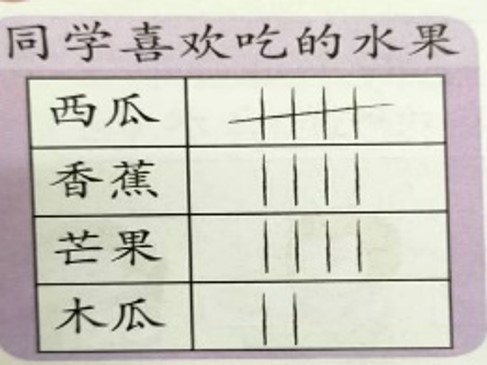 同学喜欢吃的水果
西瓜
香蕉
芒果
木瓜